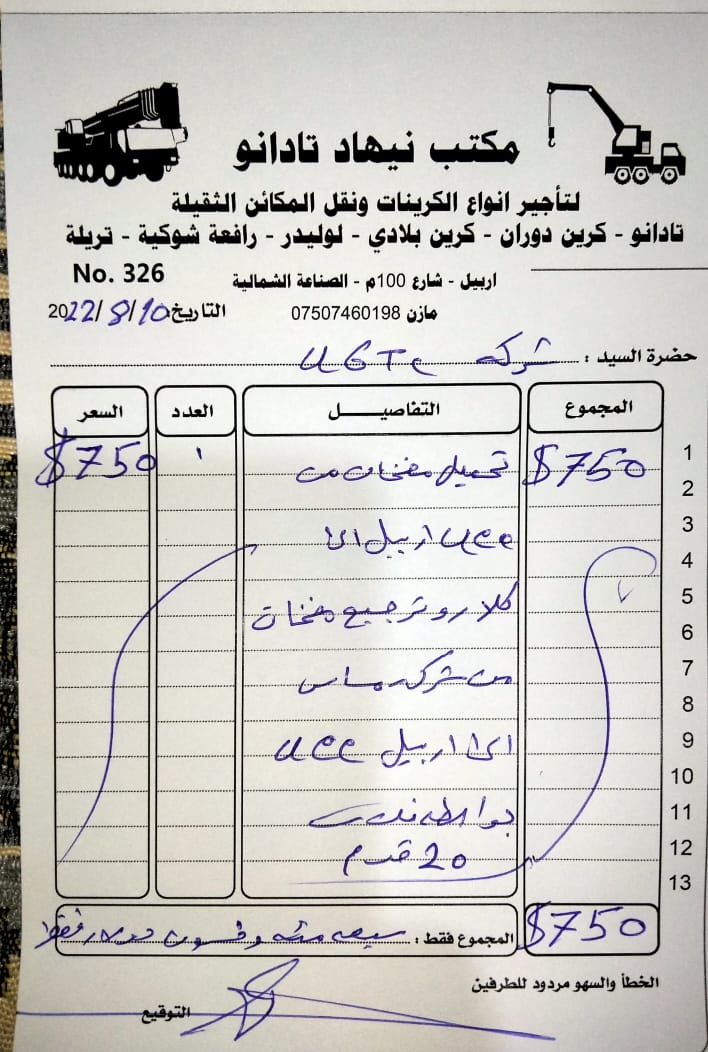 مكتب نيهاد تادانو
لتأجير انواع الكرينات ونقل المكائن الثقيلة
تادانو - كرين دوران - كرين بلادي - لوليدر - رافعة شوكية - تريلة
No. 326
اربيل - شارع 100م - الصناعة الشمالية
مازن 07507460198
التاريخ 2022/8/10
حضرة السيد : شركة UGTC
المجموع التفاصيــــل العدد السعر
1
$750 تحميل مضخات من ١ $750
2
3
اربيل الى
4
5
كلارو وترجيع مضخات
6
7
من شركة
8
9
الى اربيل
10
11
بواسطة
12
20 قدم
13
$750
المجموع فقط : سبعمئة وخمسون دولار فقط
الخطأ والسهو مردود للطرفين
التوقيع